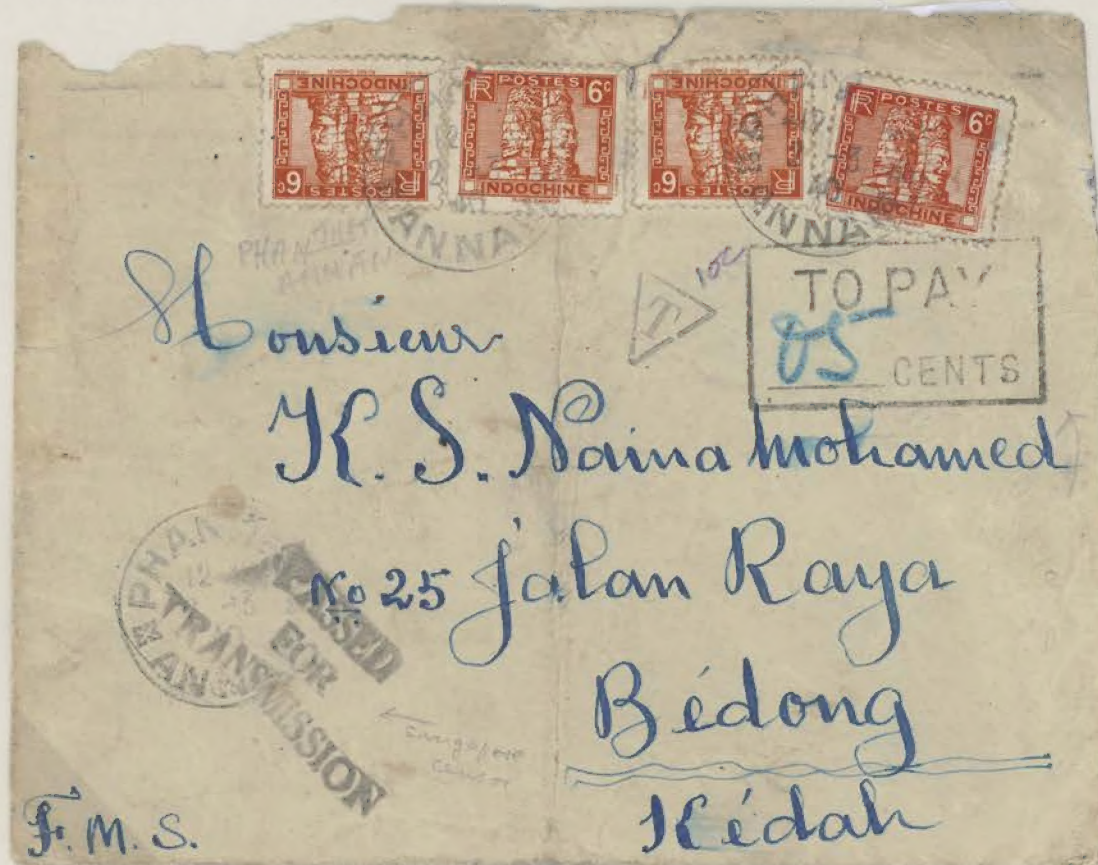 INDOCHINE
6c
POSTES
RF
RF POSTES 6c
INDOCHINE
INDOCHINE
6c
POSTES
RF
RF POSTES 6c
INDOCHINE
ANNA
ANNA
PHAN THIET
ANNAM
T
10c
TO PAY
05
CENTS
Monsieur
K. S. Naina Mohamed
No 25 Jalan Raya
Bédong
Kédah
F. M. S.
PHAN
12
AN
PASSED
FOR
TRANSMISSION
Singapore
censor